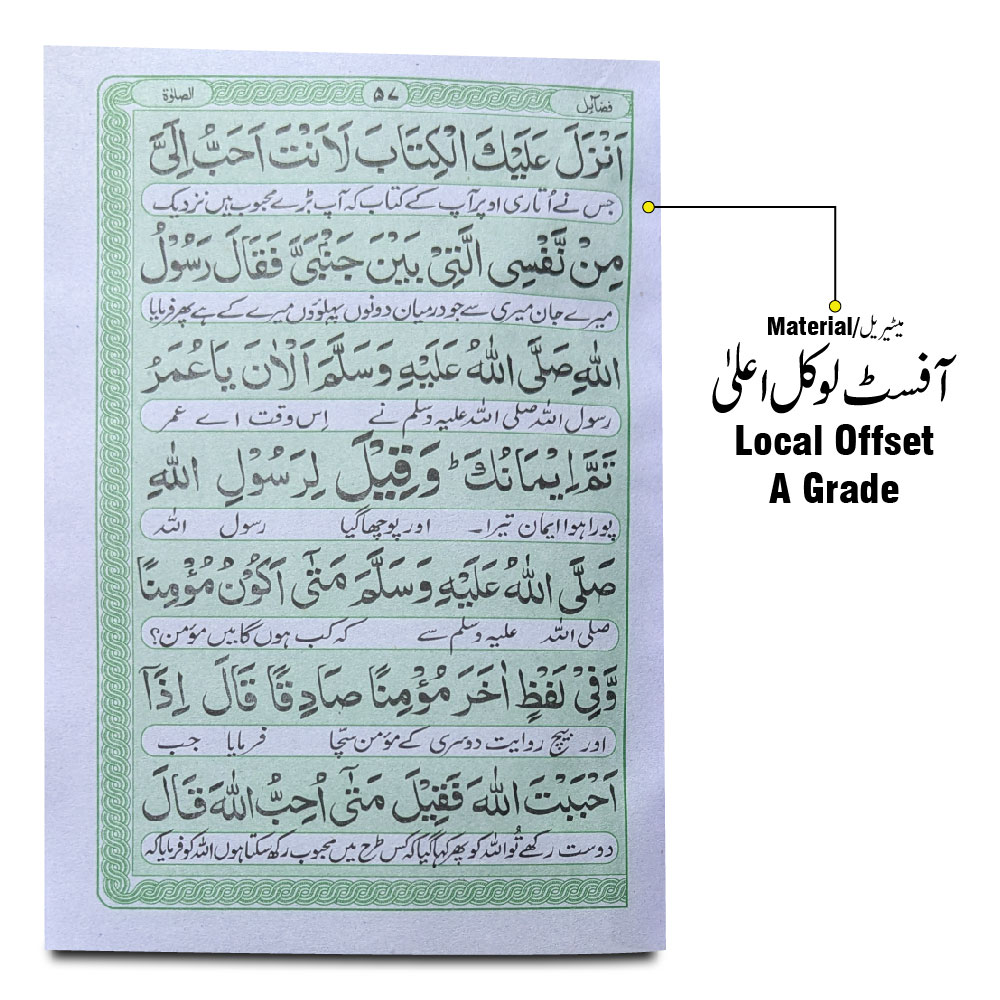 فضآئل ۵۷ الصلوٰة
اَنْزَلَ عَلَيْكَ الْكِتَابَ لَاَنْتَ اَحَبُّ اِلَىَّ
جس نے اُتاری اوپر آپ کے کتاب کہ آپ بڑے محبوب ہیں نزدیک
مِنْ نَّفْسِى الَّتِىْ بَيْنَ جَنْبَىَّ فَقَالَ رَسُوْلُ
میرے جان میری سے جو درمیان دونوں پہلوؤں میرے کے ہے پھر فرمایا
اللهِ صَلَّى اللهُ عَلَيْهِ وَسَلَّمَ اَلْاٰنَ يَاعُمَرُ
رسول اللہ صلی اللہ علیہ وسلم نے اِس وقت اے عمر
تَمَّ اِيْمَانُكَ ؕ وَقِيْلَ لِرَسُوْلِ اللهِ
پورا ہوا ایمان تیرا۔ اور پوچھا گیا رسول اللہ
صَلَّى اللهُ عَلَيْهِ وَسَلَّمَ مَتٰى اَكُوْنُ مُؤْمِنًا
صلی اللہ علیہ وسلم سے کہ کب ہوں گا میں مؤمن؟
وَّفِىْ لَفْظٍ اٰخَرَ مُؤْمِنًا صَادِقًا قَالَ اِذَآ
اور بیچ روایت دوسری کے مؤمن سچّا فرمایا جب
اَحْبَبْتَ اللهَ فَقِيْلَ مَتٰى اُحِبُّ اللهَ قَالَ
دوست رکھے تُو اللہ کو پھر کہا گیا کہ کس طرح میں محبوب رکھ سکتا ہوں اللہ کو فرمایا کہ
Material/میٹیریل
آفسٹ لوکل اعلیٰ
Local Offset
A Grade